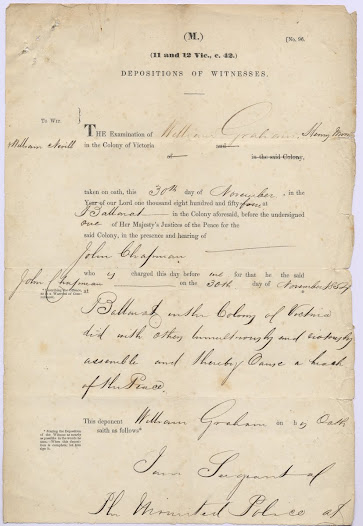 (M.)
[No. 96.
(11 and 12 Vic., c. 42.)
DEPOSITIONS OF WITNESSES.
To Wit
THE Examination of William Graham, Henry
William Nevill in the Colony of Victoria and
of in the said Colony,
taken on oath, this 30th day of November in the
Year of our Lord one thousand eight hundred and fifty four, at
Ballarat in the Colony aforesaid, before the undersigned
one of Her Majesty's Justices of the Peace for the
said Colony, in the presence and hearing of
John Chapman
who is charged this day before me for that he the said
John Chapman on the 30th day of November 1854
at
Ballarat in the Colony of Victoria
did with others tumultuously and riotously
assemble and thereby Cause a breach
of the Peace.
This deponent William Graham on his Oath
saith as follows*
I am Sergeant of
the Mounted Police at